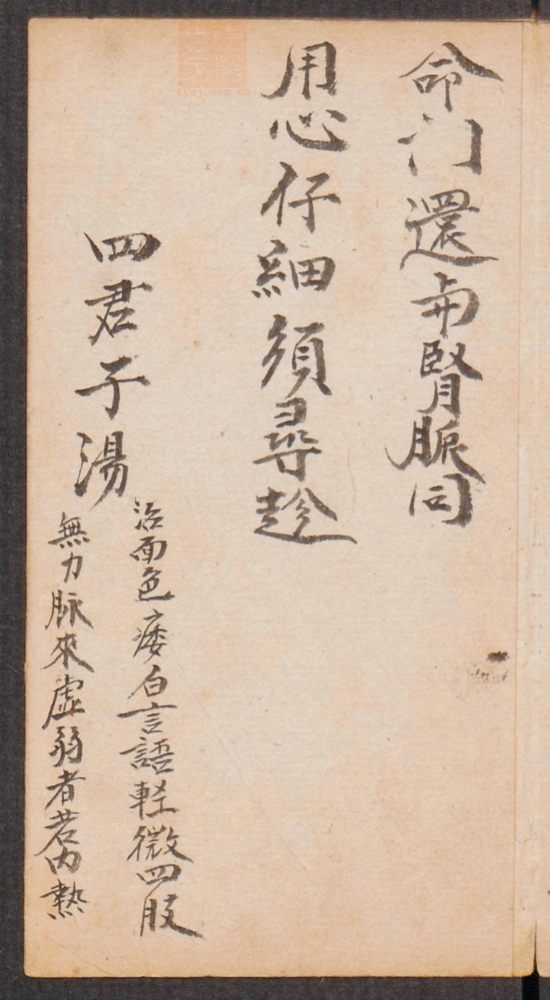 命门還与腎脈同
用心仔細須尋趁
四君子湯
治面色痿白言語輕微四肢
無力脉來虚弱者若内熱